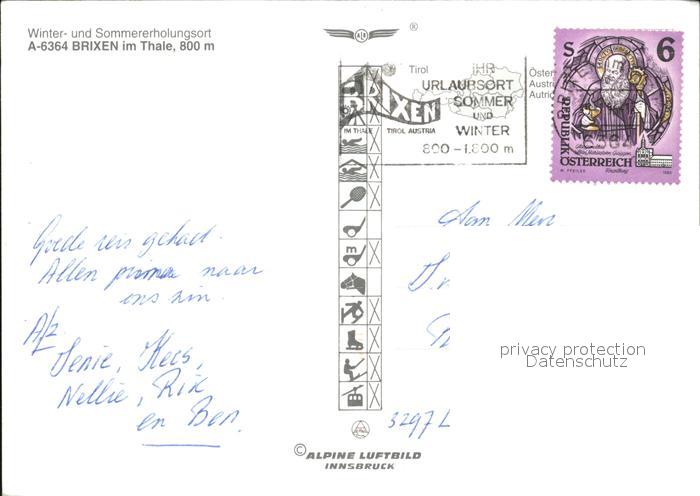 Winter- und Sommererholungsort
A-6364 BRIXEN im Thale, 800 m
®
Tirol
Öster
Austri
Autric
BRIXEN
IM THALE TIROL AUSTRIA
IHR
URLAUBSORT
SOMMER
UND
WINTER
800 - 1.800 m
S 6
REPUBLIK
ÖSTERREICH
Goede reis gehad.
Allen prima naar
ons zin.
Afz
Jenie, Kees,
Nellie, Rik
en Ben.
Aan
3297 L
m
privacy protection
Datenschutz
© ALPINE LUFTBILD
INNSBRUCK